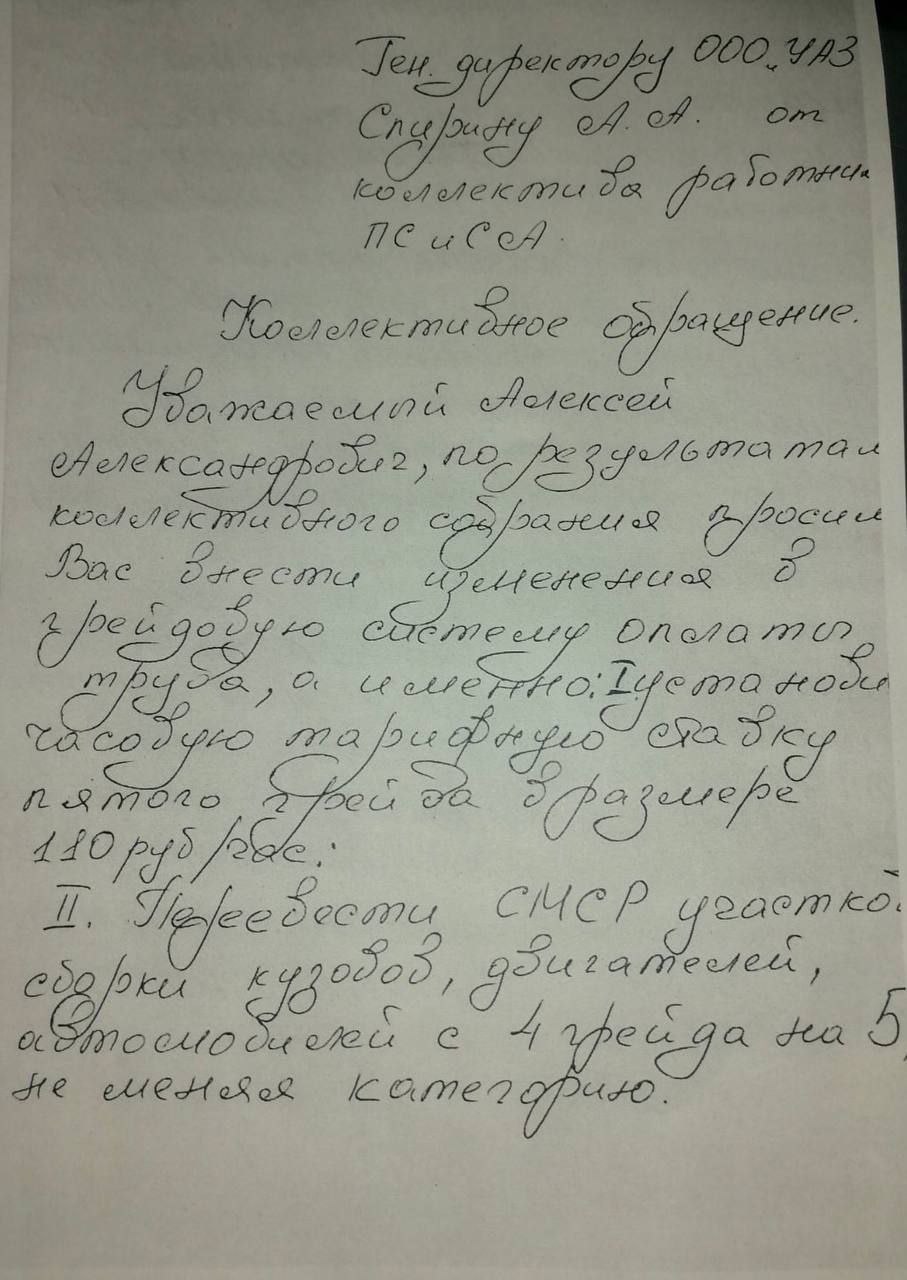 Ген. директору ООО „УАЗ
Спирину А. А. от
коллектива работни
ПС и СА.
Коллективное обращение.
Уважаемый Алексей
Александрович, по результатам
коллективного собрания просим
Вас внести изменения в
грейдовую систему оплаты
труда, а именно: I установи
часовую тарифную ставку
пятого грейда в размере
110 руб/час;
II. Перевести СМСР участко
сборки кузовов, двигателей,
автомобилей с 4 грейда на 5,
не меняя категорию.